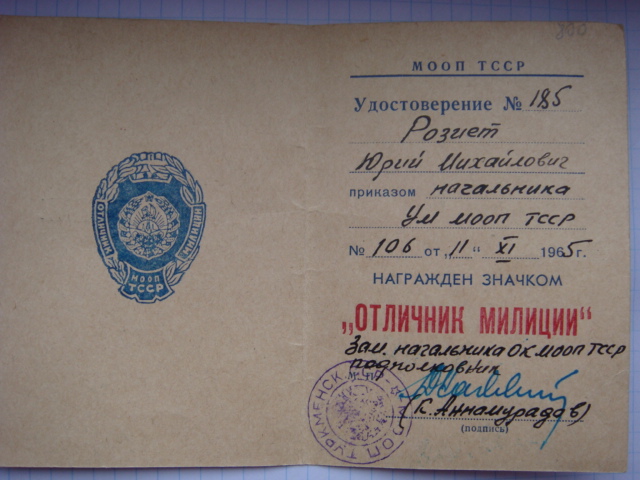 ОТЛИЧНИК МИЛИЦИИ
МООП
ТССР
300
МООП ТССР
Удостоверение № 185
Розиет
Юрий Михайлович
приказом начальника
УМ МООП ТССР
№ 106 от „11" XI 1965 г.
НАГРАЖДЕН ЗНАЧКОМ
„ОТЛИЧНИК МИЛИЦИИ“
Зам. начальника ОК МООП ТССР
подполковник
(К. Аннамурадов)
(подпись)
МООП ТУРКМЕНСКОЙ